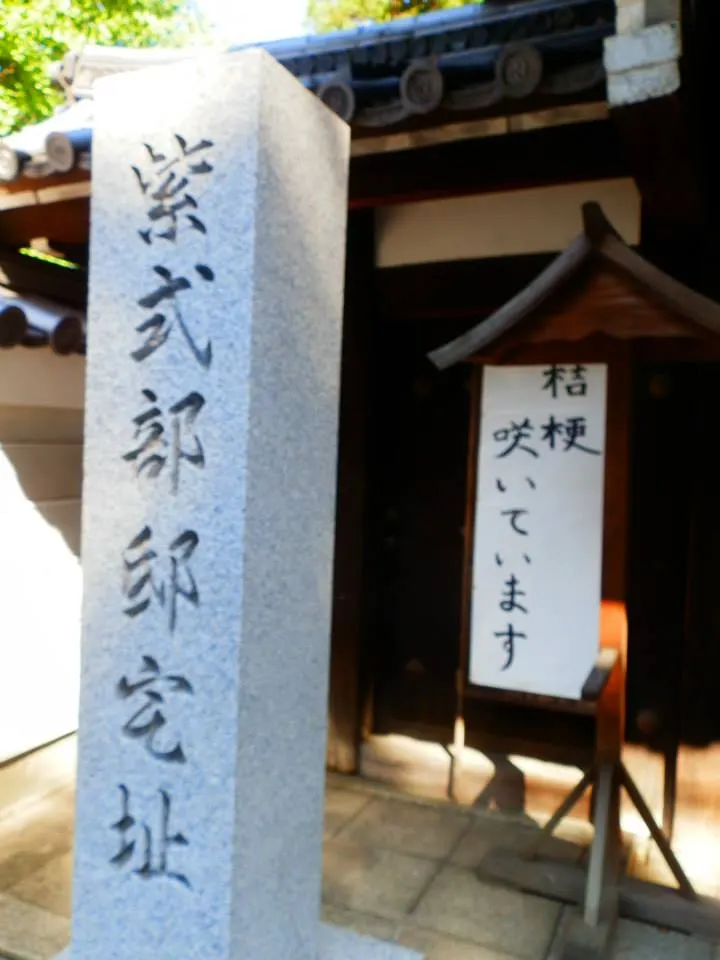 紫式部邸宅址
桔梗
咲いています